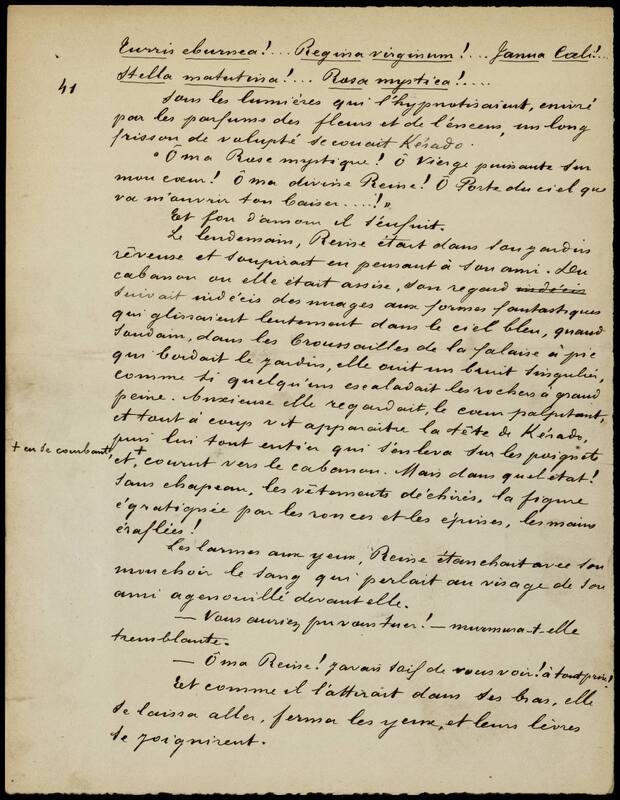 Turris eburnea!... Regina virginum!... Janua Cœli!...
Stella matutina!... Rosa mystica!....
41
Sous les lumières qui l'hypnotisaient, enivré
par les parfums des fleurs et de l'encens, un long
frisson de volupté secouait Késado.
" Ô ma Rose mystique! Ô Vierge puissante sur
mon cœur! Ô ma divine Reine! Ô Porte du ciel que
va m'ouvrir ton baiser....!"
Et fou d'amour il s'enfuit.
Le lendemain, Reine était dans son jardin
rêveuse et soupirait en pensant à son ami. Du
cabanon ou elle était assise, son regard indécis
suivait indécis des nuages aux formes fantastiques
qui glissaient lentement dans le ciel bleu, quand
soudain, dans les broussailles de la falaise à pic
qui bordait le jardin, elle ouit un bruit singulier,
comme si quelqu'un escaladait les rochers à grand
peine. Anxieuse elle regardait, le cœur palpitant,
et tout à coup vit apparaître la tête de Késado,
puis lui tout entier qui s'enleva sur les poignets
+ en se courbant,
et, + courut vers le cabanon. Mais dans quel état!
Sans chapeau, les vêtements déchirés, la figure
égratignée par les ronces et les épines, les mains
éraflées!
Les larmes aux yeux, Reine étanchait avec son
mouchoir le sang qui perlait au visage de son
ami agenouillé devant elle.
— Vous auriez pu vous tuer! — murmura-t-elle
tremblante.
— Ô ma Reine! j'avais soif de vous voir! à tout prix!
Et comme il l'attirait dans ses bras, elle
se laissa aller, ferma les yeux, et leurs lèvres
se joignirent.